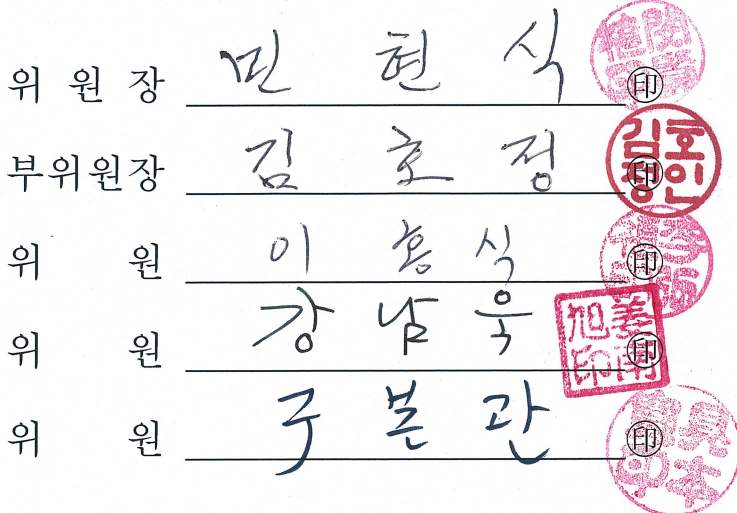 위 원 장 민 현 식 印
부위원장 김 호 정 印
위 원 이 홍 식 印
위 원 강 남 욱 印
위 원 구 본 관 印
김호정인
姜南旭印